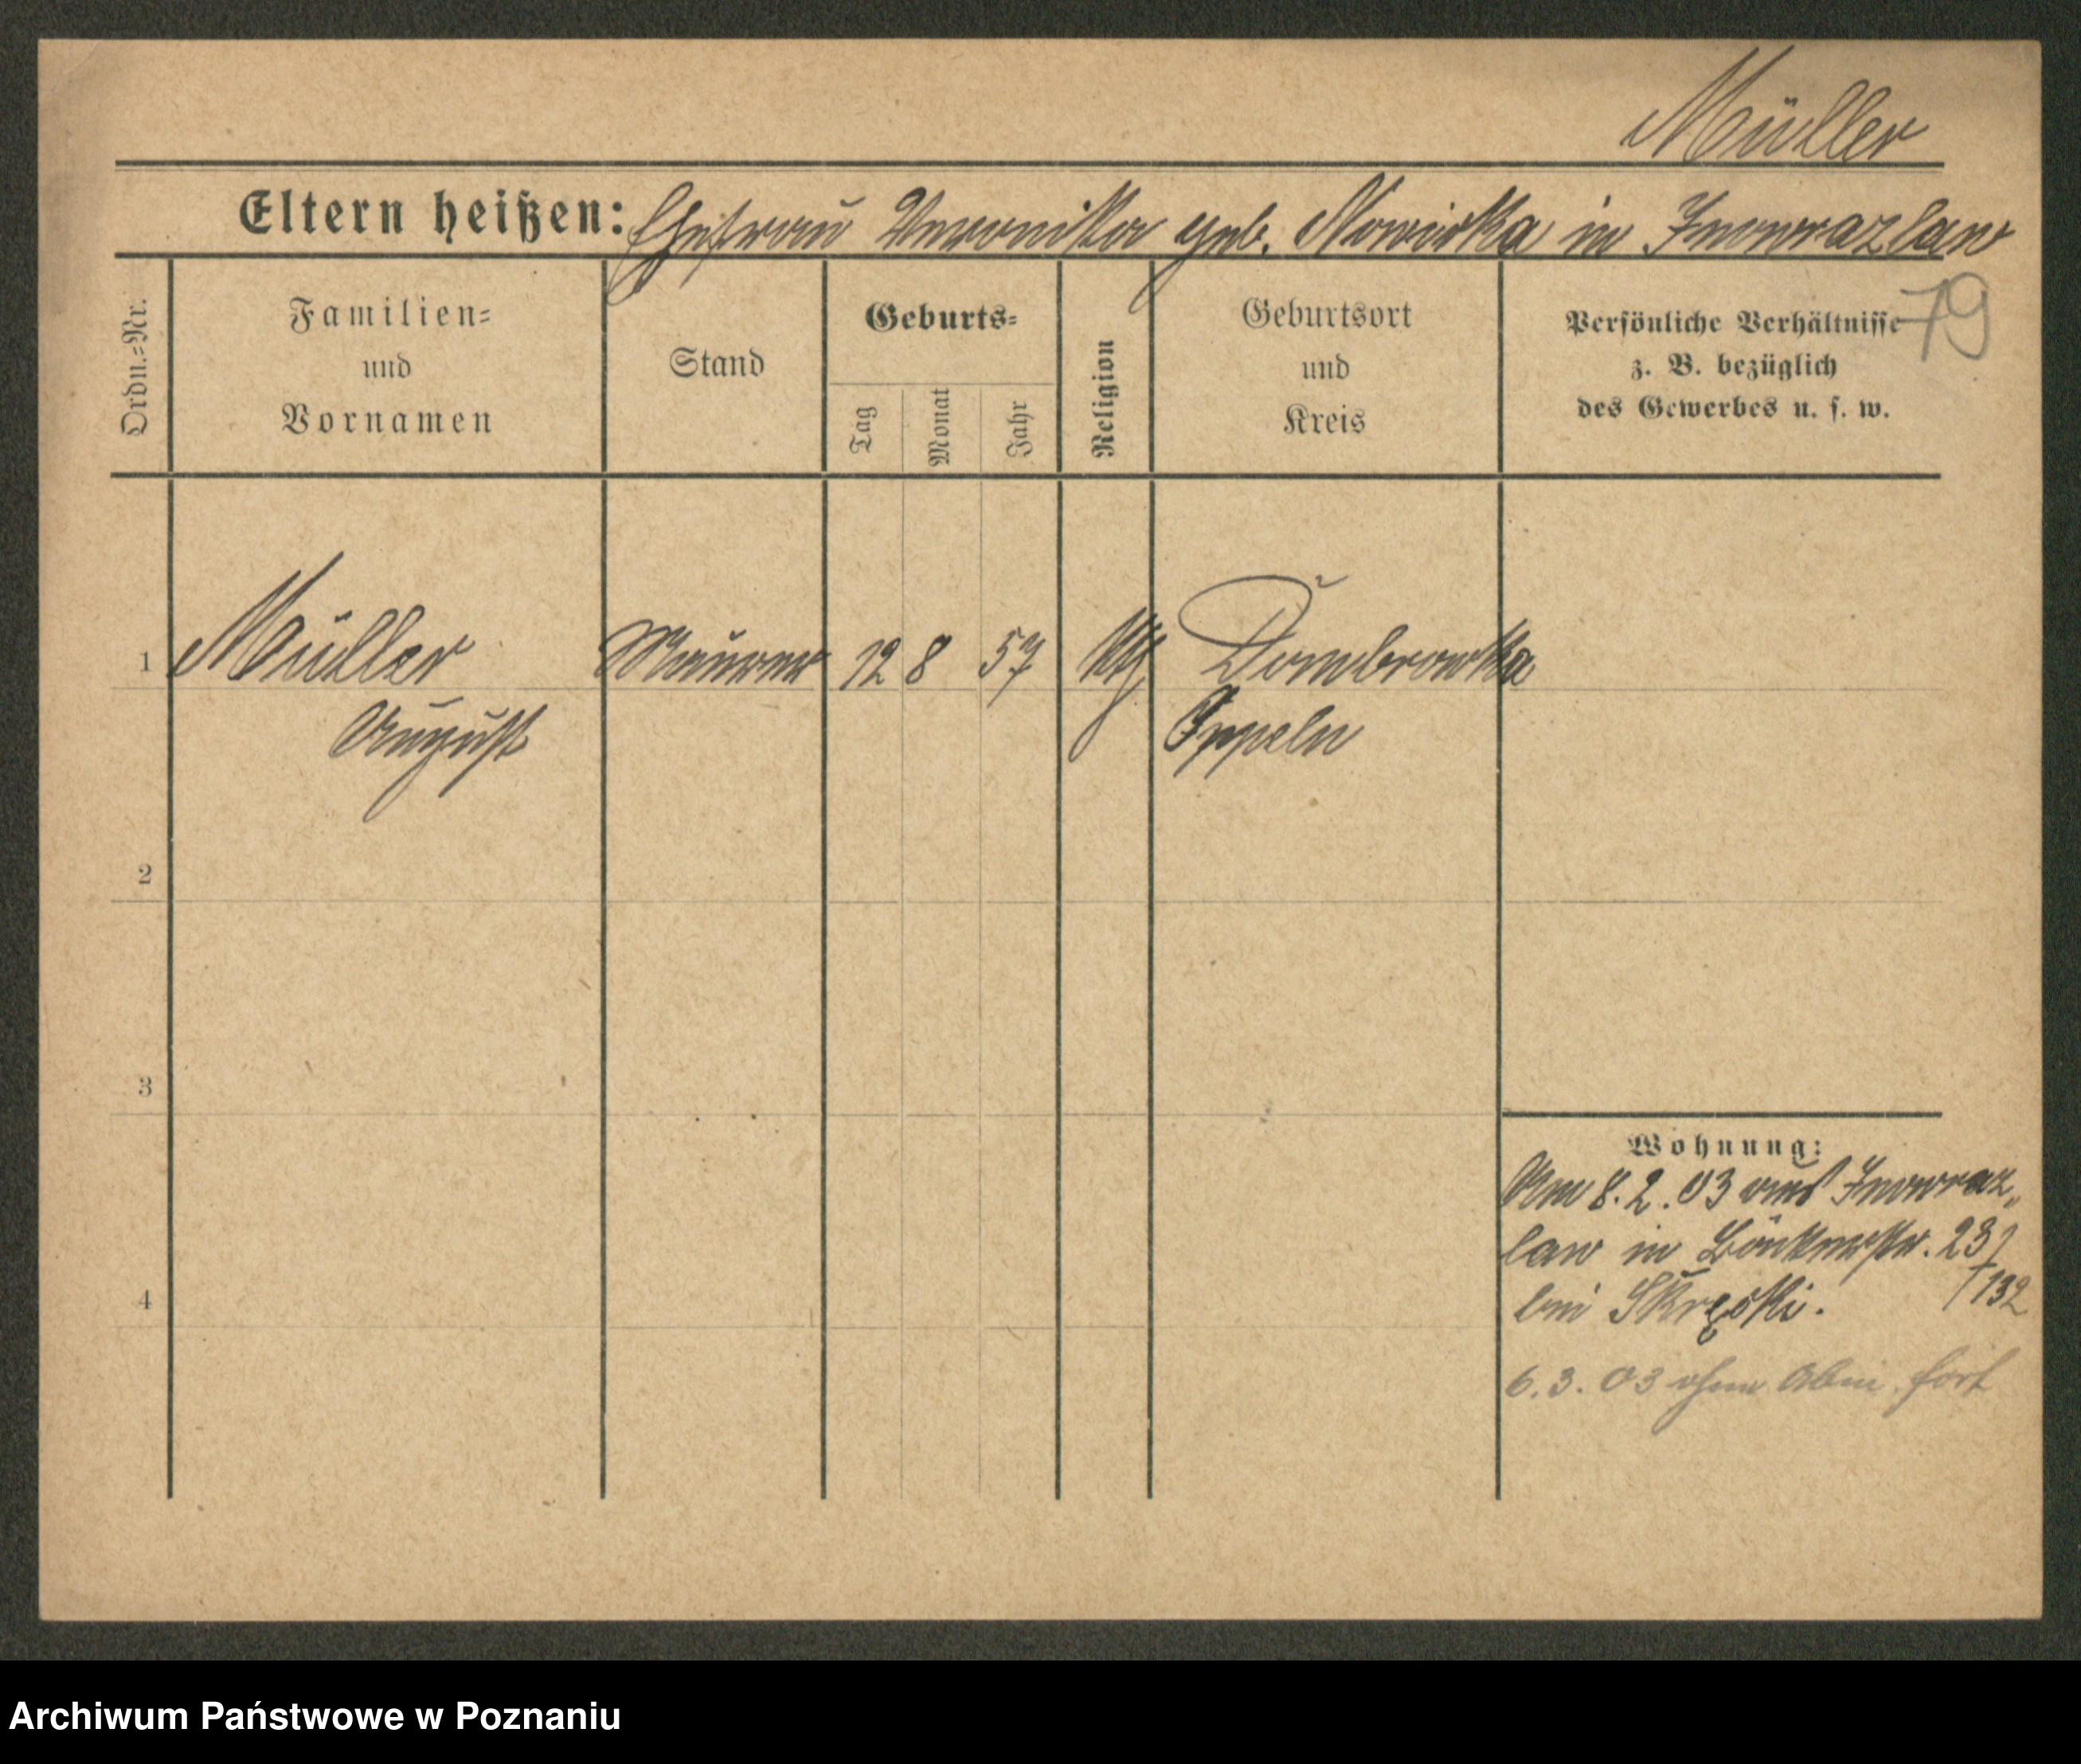 Müller
Eltern heißen: Ehefrau Veronika geb. Nowicka in Inowrazlaw
79
Ordn.=Nr.
Familien=
und
Vornamen
Stand
Geburts=
Tag
Monat
Jahr
Religion
Geburtsort
und
Kreis
Persönliche Verhältnisse
z. B. bezüglich
des Gewerbes u. s. w.
1 Müller Maurer 12 8 57 kth Dombrowka
August Oppeln
2
3
4
Wohnung:
Am 8.2.03 aus Inowraz„
law in Bäckerstr. 23
/132
bei Skręski.
6.3.03 ohne Abm. fort
Archiwum Państwowe w Poznaniu